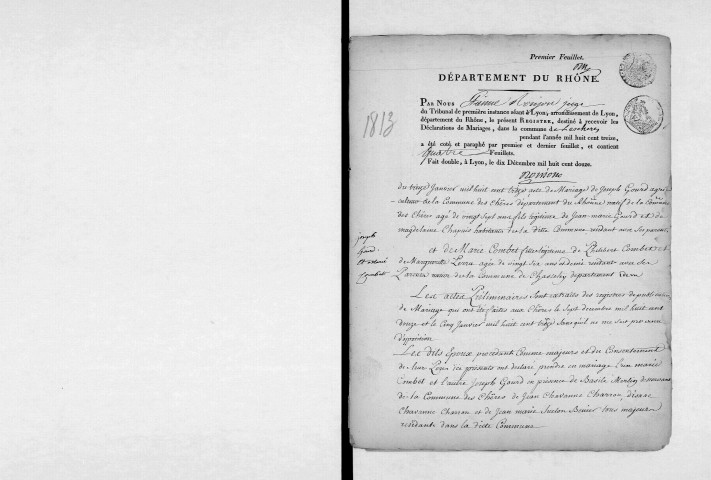 Premier Feuillet.
DÉPARTEMENT DU RHÔNE.
PAR NOUS juge
du Tribunal de première instance séant à Lyon, arrondissement de Lyon,
département du Rhône, le présent REGISTRE, destiné à recevoir les
Déclarations de Mariages, dans la commune de Les cheres
pendant l'année mil huit cent treize,
a été coté et paraphé par premier et dernier feuillet, et contient
quatre Feuillets.
Fait double, à Lyon, le dix Décembre mil huit cent douze.
1813
du treize Janvier mil huit cent treize acte de Mariage de Joseph Gourd agri
culteur de la Commune des Chères département du Rhône natif de la Commune
des Chères agé de vingt sept ans fils légitime de Jean marie Gourd et de
magdelaine Chapuis habitants de la ditte Commune résidant avec ses parents
joseph
Gourd
et marie
Combet
et de Marie Combet fille légitime de Philibert Combet et
de Marguerite agée de vingt six ans et demie résidant avec ses
Parents native de la Commune de Chasselay département idem
Les actes Préliminaires sont extraits des registres de publication
de Mariage qui ont été faites aux Chères le Sept decembre mil huit cent
douze et le Cinq Janvier mil huit cent treize sans qu'il ne me soit parvenu
d'opposition
Les dits Epoux procédant comme majeurs et du Consentement
de leur ici présents ont déclaré prendre en mariage l'un marie
Combet et l'autre Joseph Gourd en présence de Basile demeurant
de la Commune des Chères de Jean Chavanne Charron,
Chavanne Charron et de Jean marie tous majeurs
résidants dans la ditte Commune